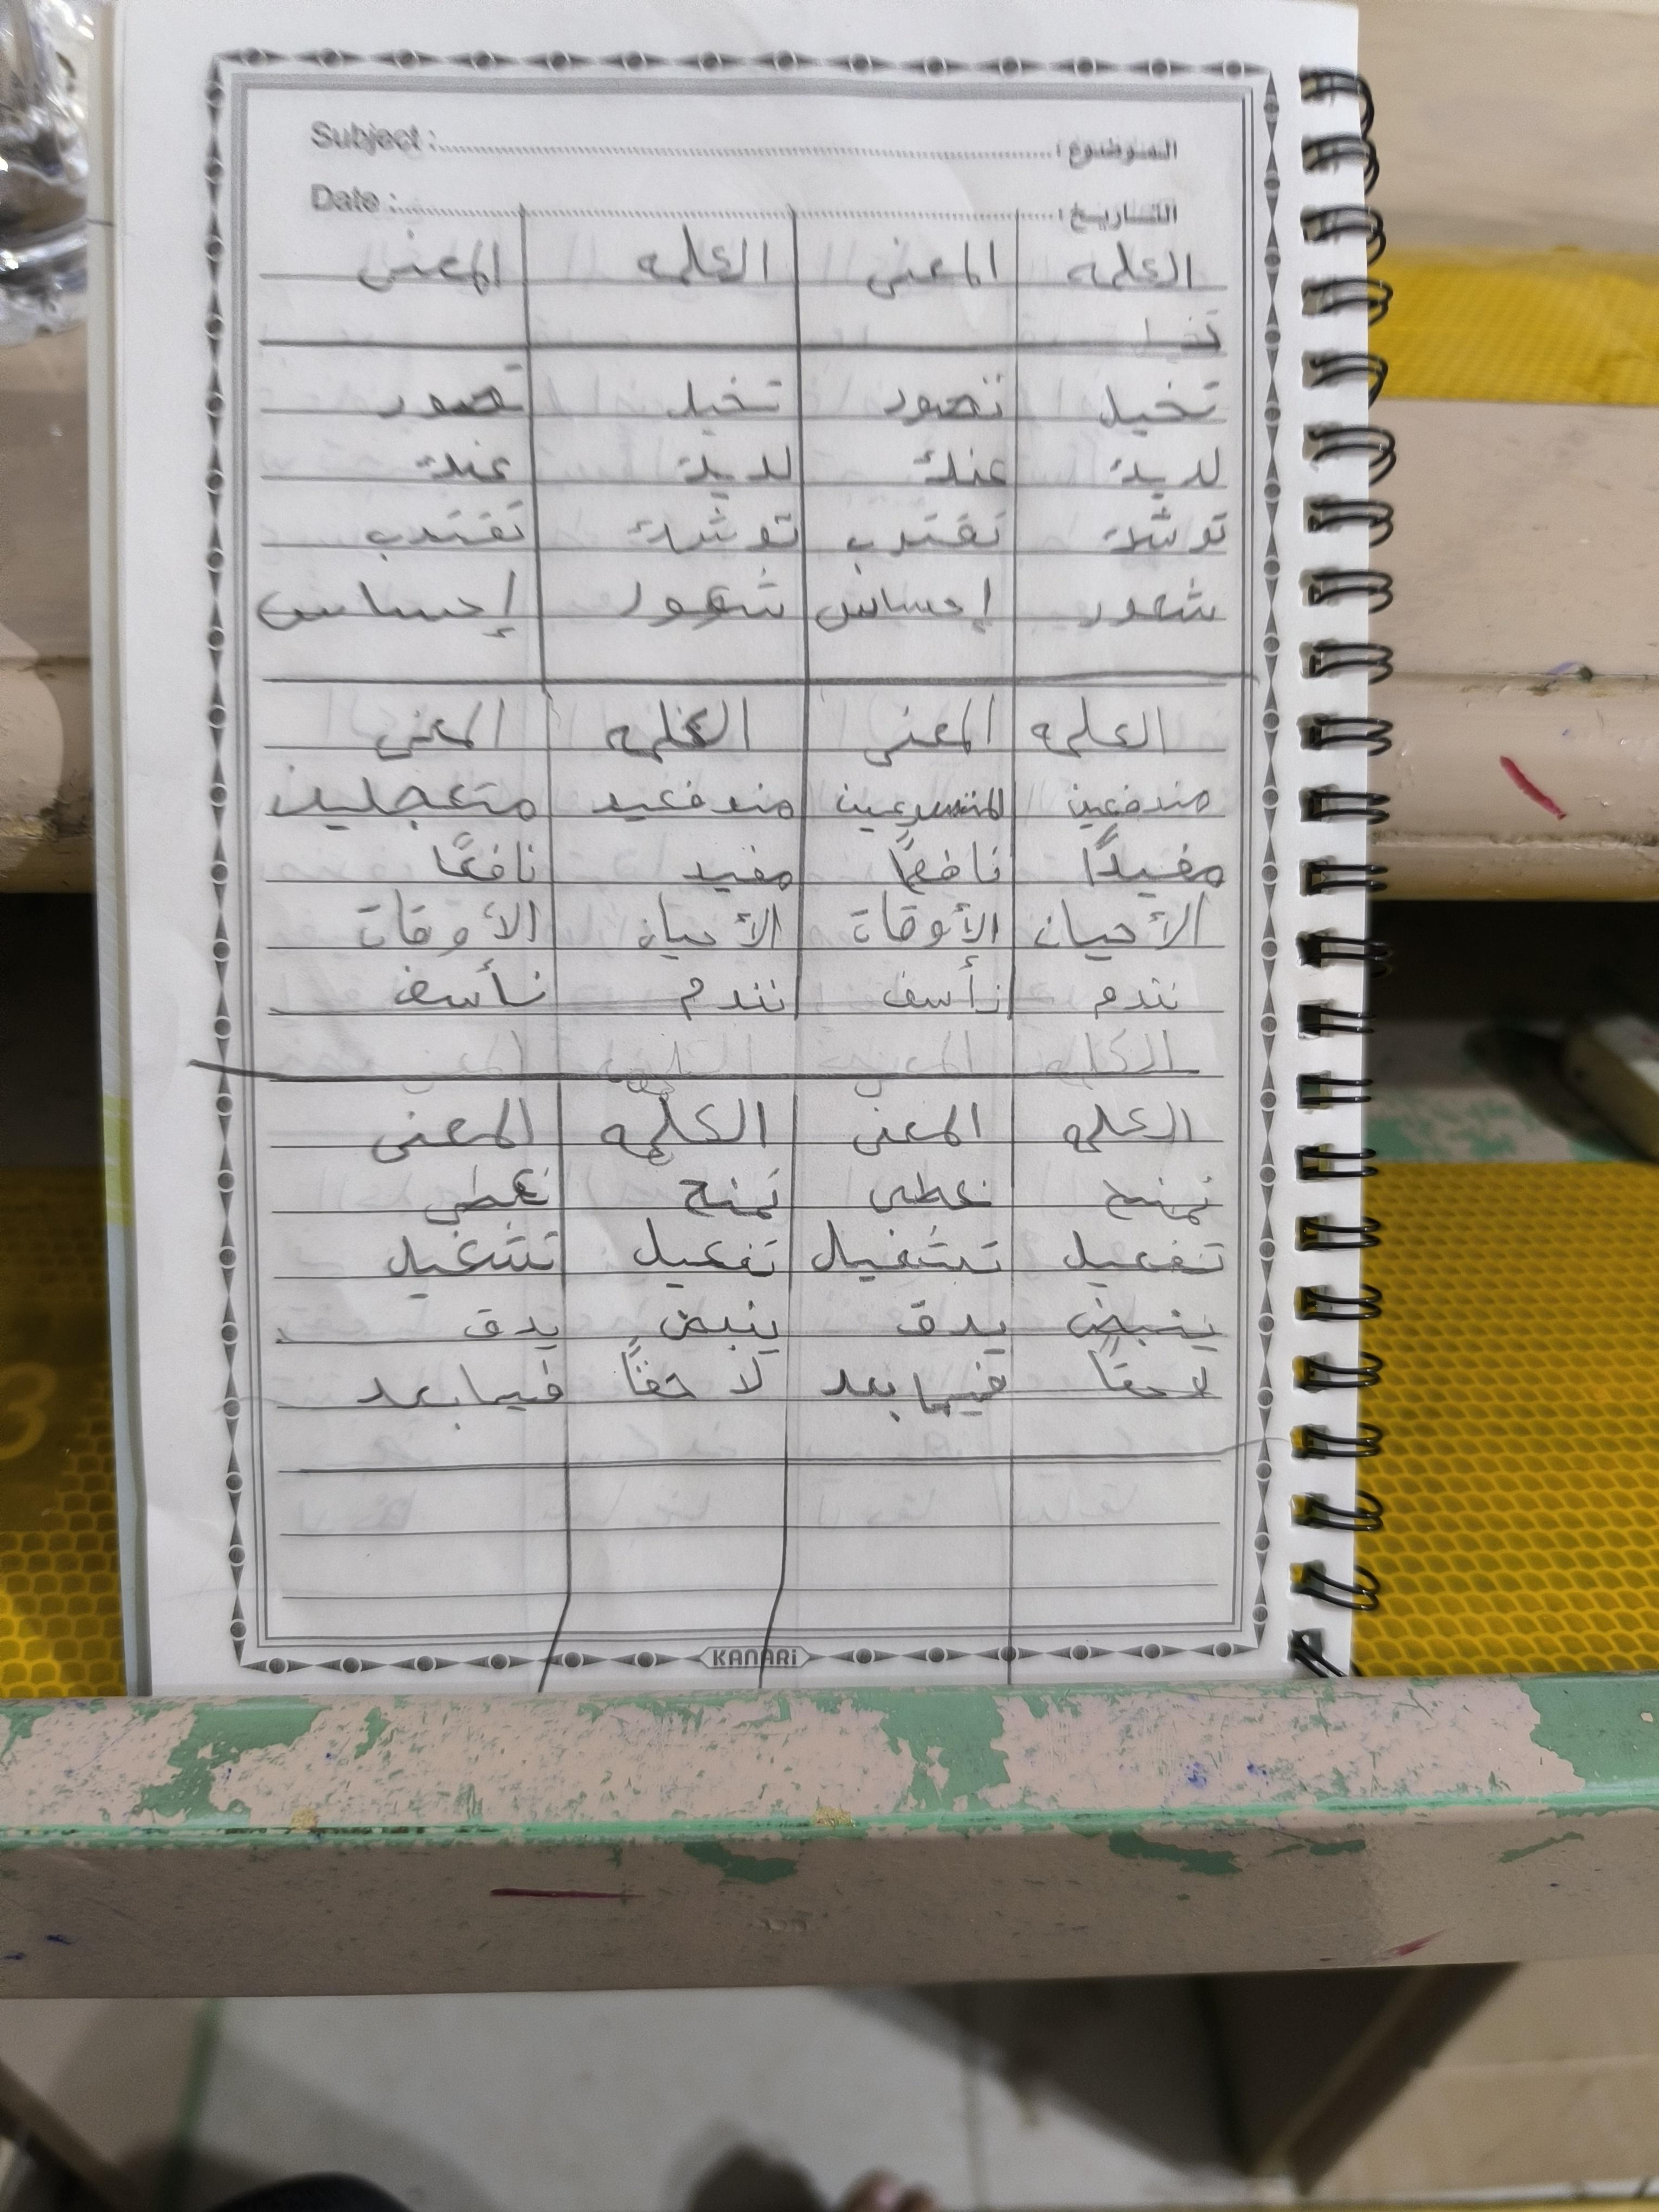 Subject : الموضوع :
Date : التاريخ :
الكلمه المعنى الكلمه المعنى
تخيل
تخيل تصور تخيل تصور
لديك عندك لديك عندك
توشك تقترب توشك تقترب
شعور إحساس شعور إحساس
الكلمه المعنى الكلمه المعنى
مندفعين متسرعين مندفعين متعجلين
مفيدًا نافعًا مفيد نافعًا
الأحيان الأوقات الأحيان الأوقات
نندم نأسف نندم نأسف
الكلمه المعنى الكلمه المعنى
الكلمه المعنى الكلمه المعنى
نمنح نعطى نمنح نعطى
تفعيل تشغيل تفعيل تشغيل
ينبض يدق ينبض يدق
لاحقًا فيما بعد لاحقًا فيما بعد
KANARi